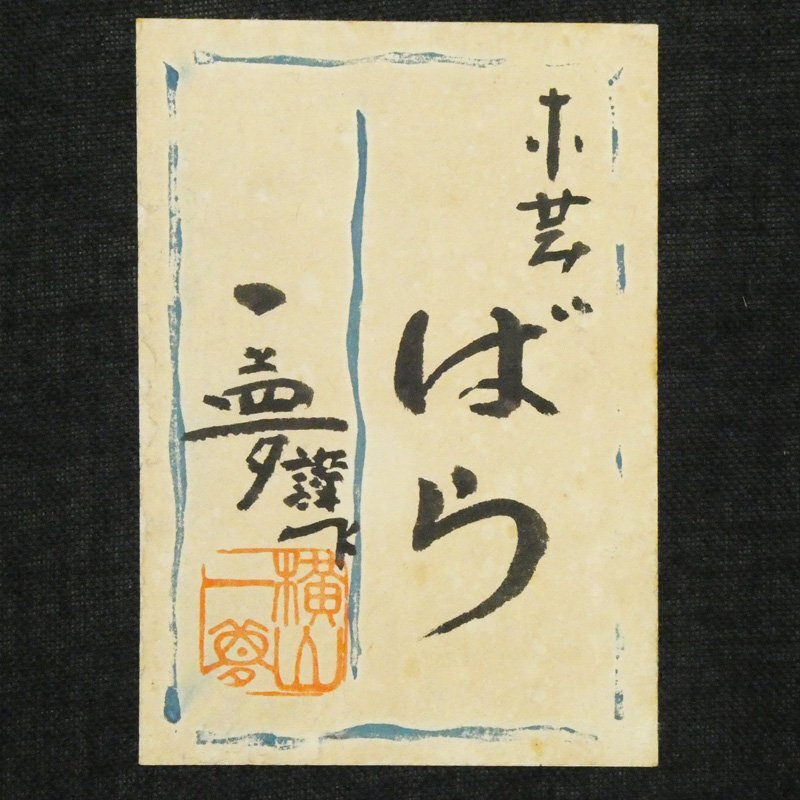 木芸
ばら
一夢謹作
横山
一夢